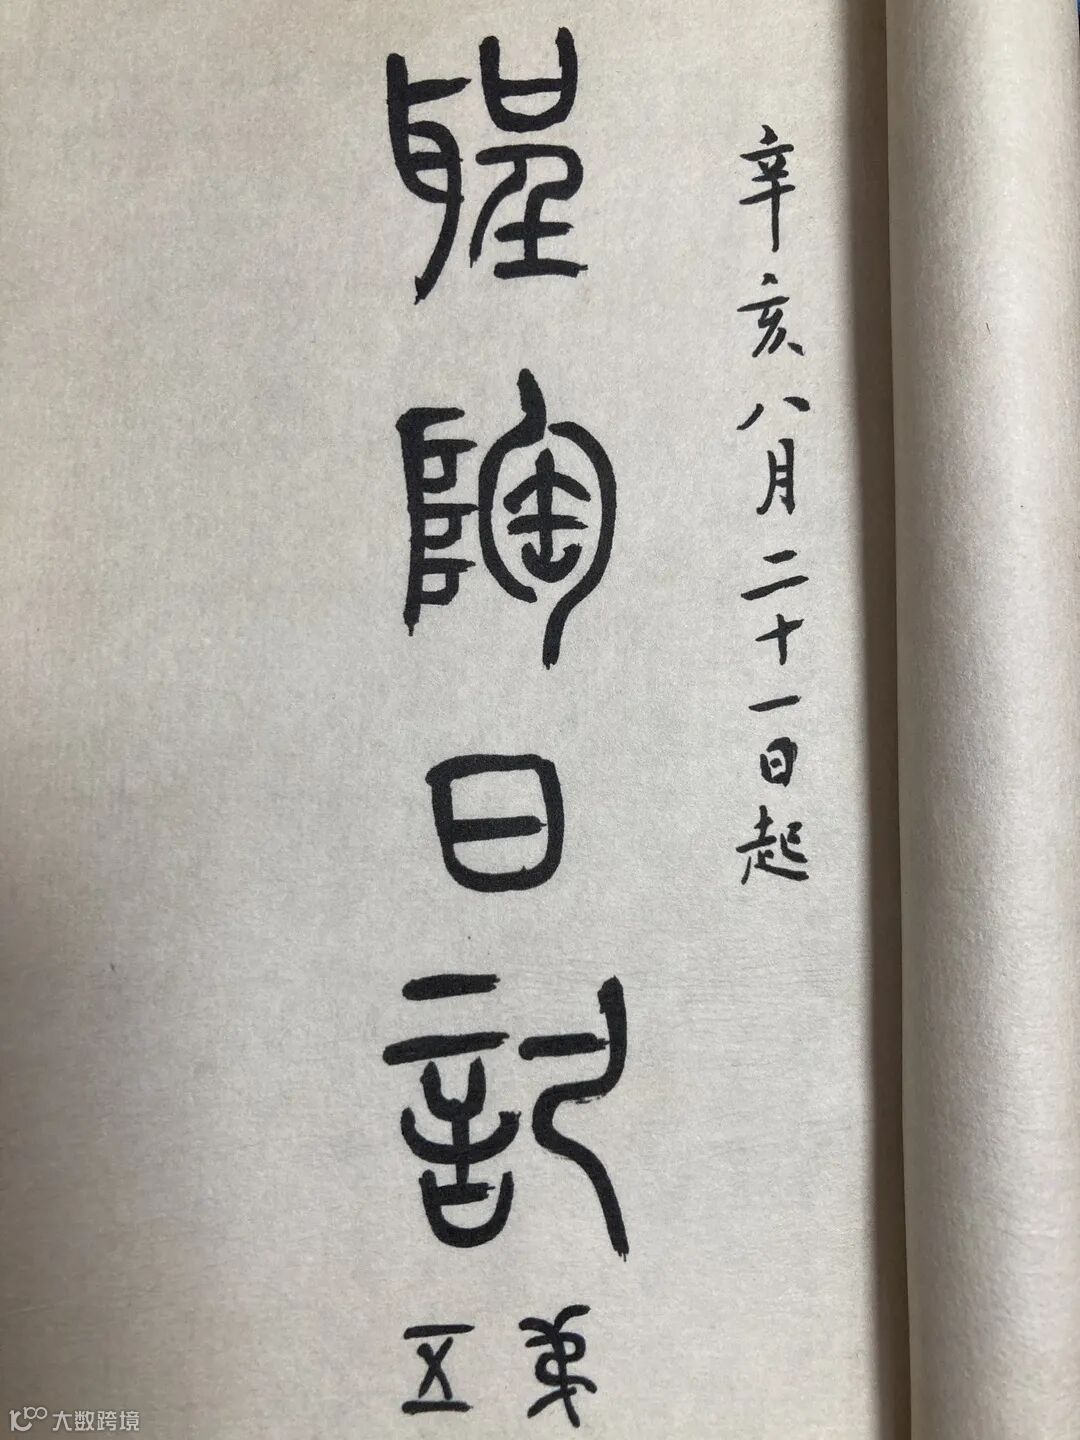 辛亥八月二十一日起
聖陶日記
弟五
大数跨境